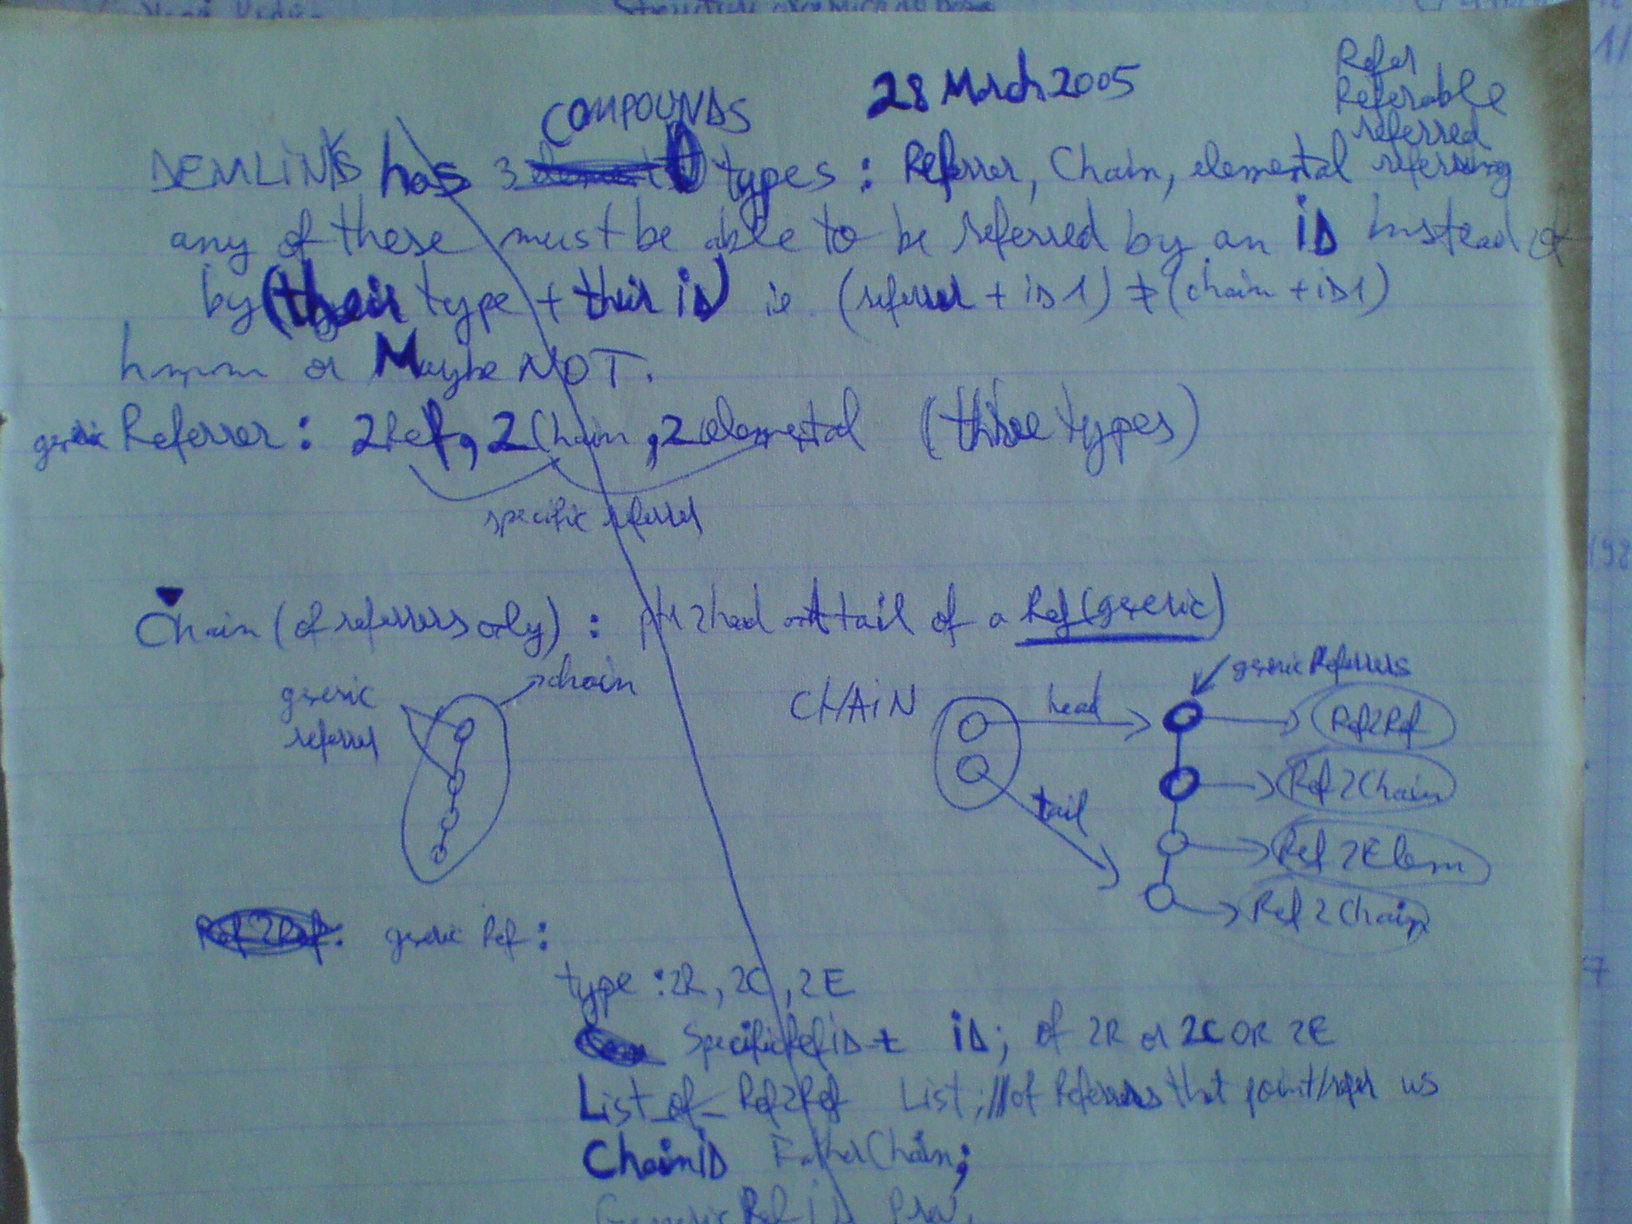 28 March 2005
Refer
Referable
referred
referring
COMPOUNDS
DEMLINKS has 3 types : Referrer, Chain, elemental
any of these must be able to be referred by an iD instead of
by (their type + their iD) ie (referrer + iD1) ≠ (chain + iD1)
hmmm or Maybe NOT.
generic Referrer : 2Ref, 2Chain, 2elemental (three types)
specific referrer
Chain (of referrers only) : ptr2head tail of a Ref(generic)
generic referrer
chain
CHAiN
head
tail
generic Referrers
Ref2Ref
Ref2Chain
Ref2Elem
Ref2Chain
Ref2Ref: generic Ref :
type : 2R, 2C, 2E
SpecificRefiD_t iD; of 2R or 2C OR 2E
List_of_Ref2Ref List; // of Referrers that point/refer us
ChainiD FatherChain;
GenericRefiD Prev;